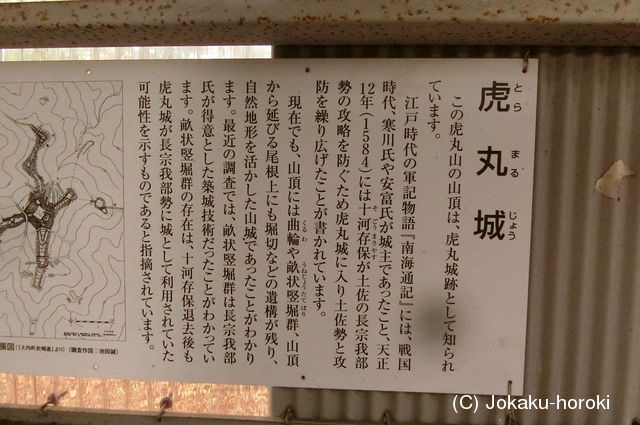 虎丸城
とら まる じょう
この虎丸山の山頂は、虎丸城跡として知られ
ています。
江戸時代の軍記物語『南海通記』には、戦国
時代、寒川氏や安富氏が城主であったこと、天正
12年(1584)には十河存保が土佐の長宗我部
そごうまさやす
勢の攻略を防ぐため虎丸城に入り土佐勢と攻
防を繰り広げたことが書かれています。
現在でも、山頂には曲輪や畝状竪堀群、山頂
くるわ うねじょうたてぼり
から延びる尾根上にも堀切などの遺構が残り、
自然地形を活かした山城であったことがわかり
ます。最近の調査では、畝状竪堀群は長宗我部
氏が得意とした築城技術だったことがわかってい
ます。畝状竪堀群の存在は、十河存保退去後も
虎丸城が長宗我部勢に城として利用されていた
可能性を示すものであると指摘されています。
張図(『大内町史補遺』より) (調査作図：池田誠)
(C) Jokaku-horoki